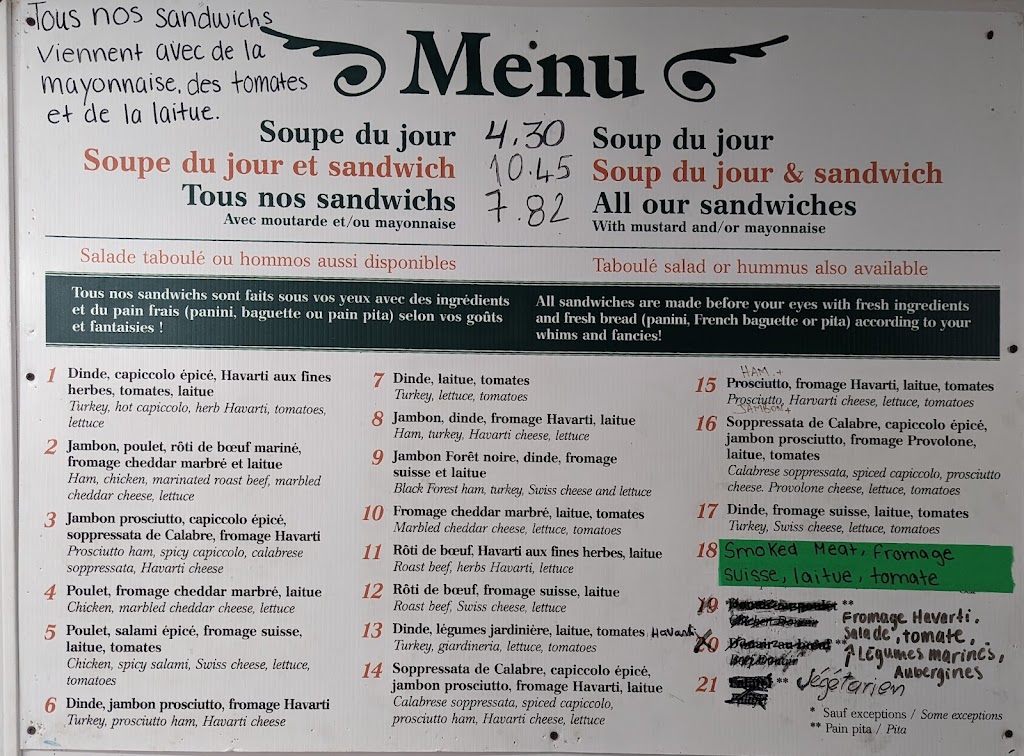 Tous nos sandwichs
viennent avec de la
mayonnaise, des tomates
et de la laitue.
Menu
Soupe du jour 4.30 Soup du jour
Soupe du jour et sandwich 10.45 Soup du jour & sandwich
Tous nos sandwichs 7.82 All our sandwiches
Avec moutarde et/ou mayonnaise With mustard and/or mayonnaise
Salade taboulé ou hommos aussi disponibles Taboulé salad or hummus also available
Tous nos sandwichs sont faits sous vos yeux avec des ingrédients
et du pain frais (panini, baguette ou pain pita) selon vos goûts
et fantaisies !
All sandwiches are made before your eyes with fresh ingredients
and fresh bread (panini, French baguette or pita) according to your
whims and fancies!
1 Dinde, capiccolo épicé, Havarti aux fines
herbes, tomates, laitue
Turkey, hot capiccolo, herb Havarti, tomatoes,
lettuce
2 Jambon, poulet, rôti de bœuf mariné,
fromage cheddar marbré et laitue
Ham, chicken, marinated roast beef, marbled
cheddar cheese, lettuce
3 Jambon prosciutto, capiccolo épicé,
soppressata de Calabre, fromage Havarti
Prosciutto ham, spicy capiccolo, calabrese
soppressata, Havarti cheese
4 Poulet, fromage cheddar marbré, laitue
Chicken, marbled cheddar cheese, lettuce
5 Poulet, salami épicé, fromage suisse,
laitue, tomates
Chicken, spicy salami, Swiss cheese, lettuce,
tomatoes
6 Dinde, jambon prosciutto, fromage Havarti
Turkey, prosciutto ham, Havarti cheese
7 Dinde, laitue, tomates
Turkey, lettuce, tomatoes
8 Jambon, dinde, fromage Havarti, laitue
Ham, turkey, Havarti cheese, lettuce
9 Jambon Forêt noire, dinde, fromage
suisse et laitue
Black Forest ham, turkey, Swiss cheese and lettuce
10 Fromage cheddar marbré, laitue, tomates
Marbled cheddar cheese, lettuce, tomatoes
11 Rôti de bœuf, Havarti aux fines herbes, laitue
Roast beef, herbs Havarti, lettuce
12 Rôti de bœuf, fromage suisse, laitue
Roast beef, Swiss cheese, lettuce
13 Dinde, légumes jardinière, laitue, tomates, Havarti
Turkey, giardineria, lettuce, tomatoes
14 Soppressata de Calabre, capiccolo épicé,
jambon prosciutto, fromage Havarti, laitue
Calabrese soppressata, spiced capiccolo,
prosciutto ham, Havarti cheese, lettuce
HAM +
15 Prosciutto, fromage Havarti, laitue, tomates
Prosciutto, Harvarti cheese, lettuce, tomatoes
JAMBON +
16 Soppressata de Calabre, capiccolo épicé,
jambon prosciutto, fromage Provolone,
laitue, tomates
Calabrese soppressata, spiced capiccolo, prosciutto
cheese. Provolone cheese, lettuce, tomatoes
17 Dinde, fromage suisse, laitue, tomates
Turkey, Swiss cheese, lettuce, tomatoes
18 Smoked Meat, fromage
suisse, laitue, tomate
19 **
20 **
Fromage Havarti.
Salade, tomate,
Légumes marinés,
Aubergines
21 ** Végétarien
* Sauf exceptions / Some exceptions
** Pain pita / Pita